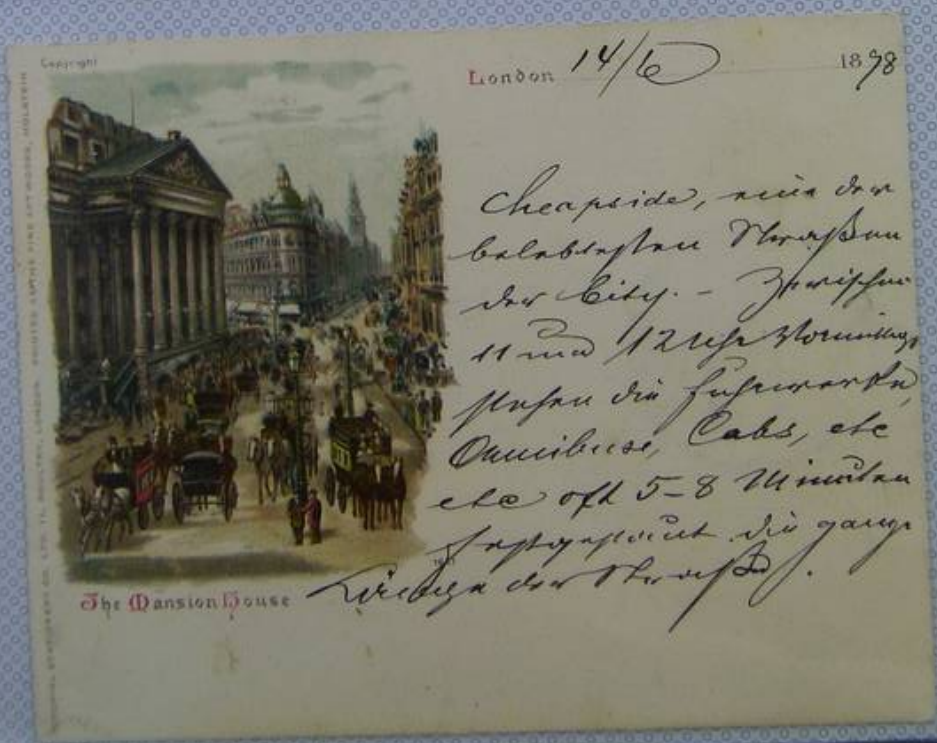 Copyright
London 14/6 1898
Cheapside, eine der
belebtesten Straßen
der City. – Zwischen
11 und 12 Uhr Vormittags
stehen die Fuhrwerke,
Omnibuse, Cabs, etc
etc oft 5–8 Minuten
festgestaut die ganze
Länge der Straße.
The Mansion House